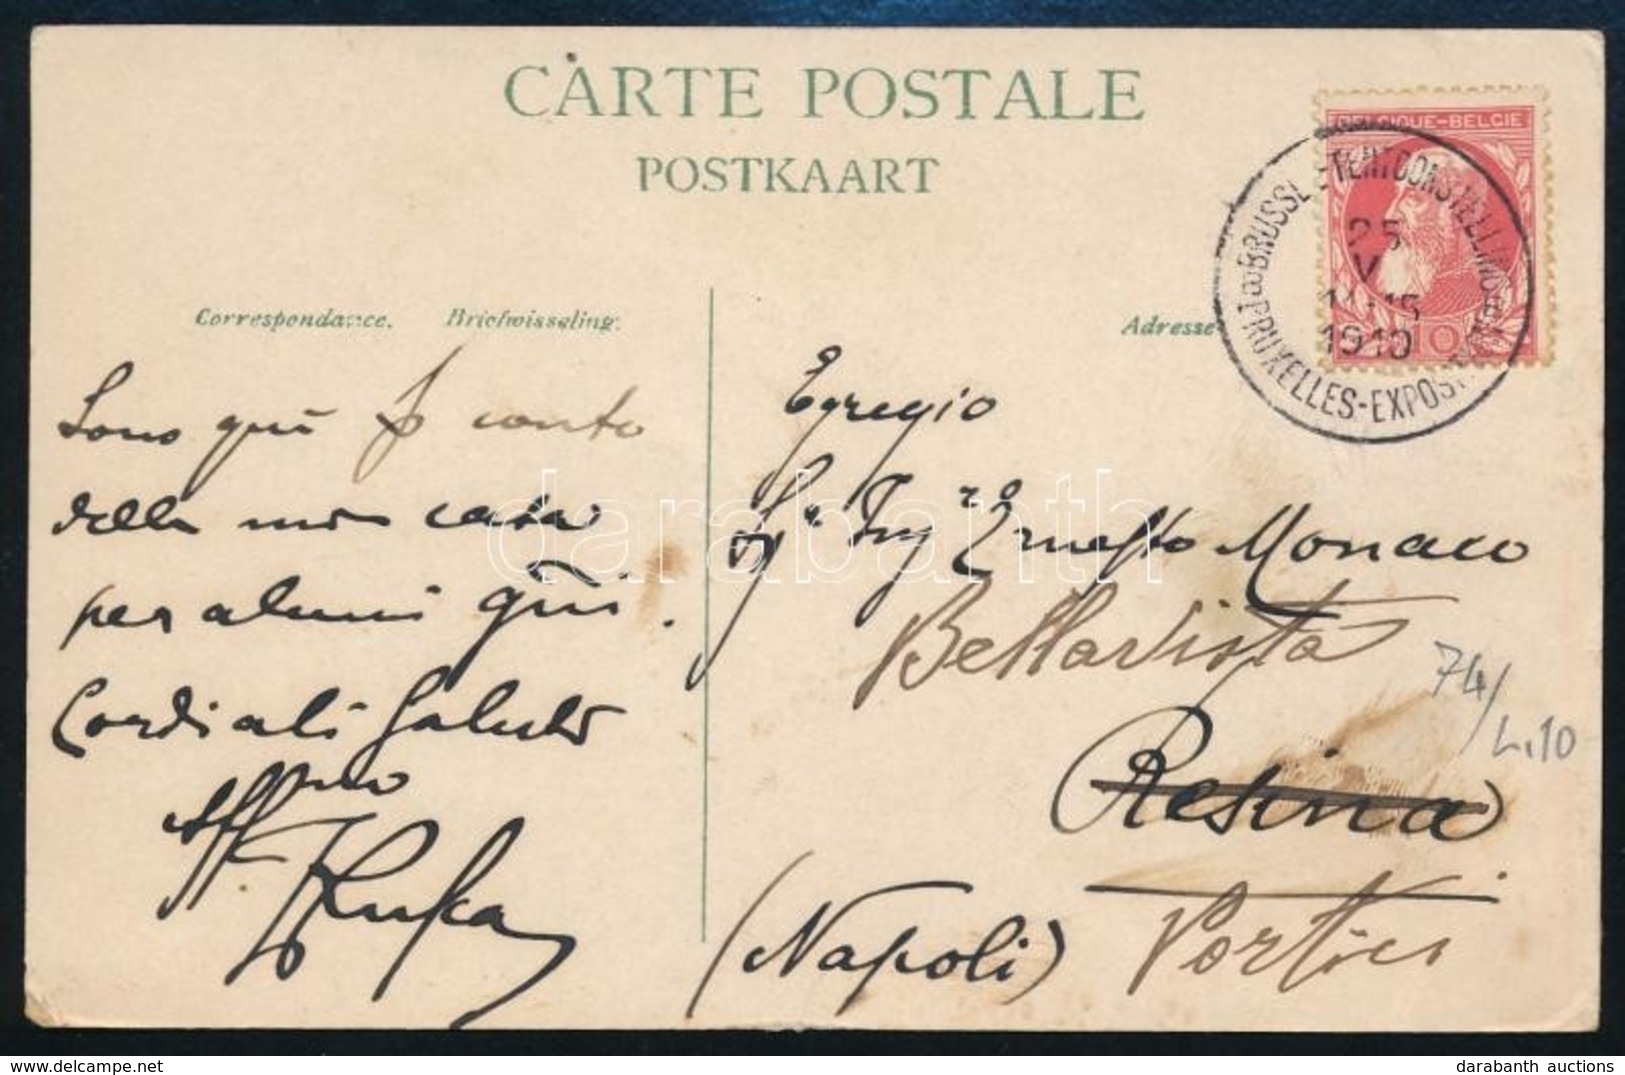 CARTE POSTALE
POSTKAART
BELGIQUE-BELGIE
BRUSSEL-TENTOONSTELLING
25
V
11-15
1910
10
BRUXELLES-EXPOSITION
Correspondance. Briefwisseling.
Adresse
Sono qui p conto
della mia casa
per alcuni giorni.
Cordiali saluti
Aff
Egregio
Sigr. Ing Ernesto Monaco
Bellavista
Resina
(Napoli) Portici
74/
L.10
darabanth
darabanth auctions